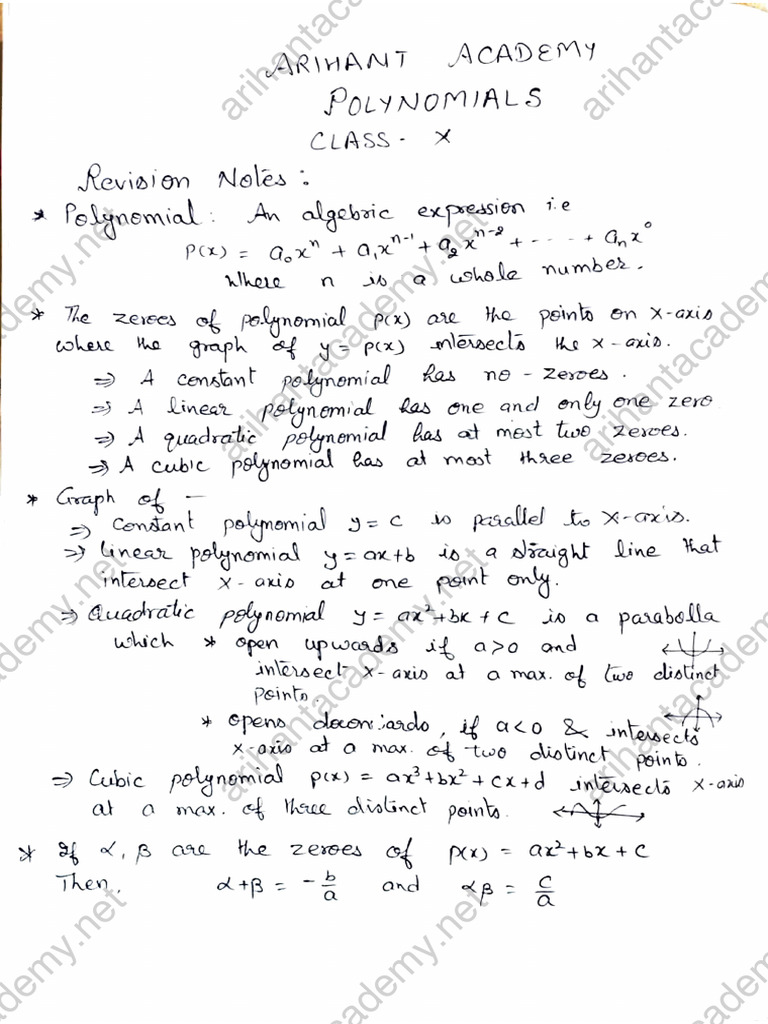 ARIHANT ACADEMY
POLYNOMIALS
CLASS - X
Revision Notes :
* Polynomial : An algebric expression i.e
P(x) = a₀xⁿ + a₁xⁿ⁻¹ + a₂xⁿ⁻² + ----- + aₙx⁰
Where n is a whole number.
* The zeroes of polynomial p(x) are the points on X-axis
where the graph of y = p(x) intersects the x-axis.
⇒ A constant polynomial has no-zeroes.
⇒ A linear polynomial has one and only one zero
⇒ A quadratic polynomial has at most two zeroes.
⇒ A cubic polynomial has at most three zeroes.
* Graph of —
⇒ Constant polynomial y = c is parallel to X-axis.
⇒ linear polynomial y = ax+b is a straight line that
intersect X-axis at one point only.
⇒ Quadratic polynomial y = ax²+bx+c is a parabolla
which * open upwards if a>0 and
intersect X-axis at a max. of two distinct
points.
* opens downwards, if a<0 & intersects
X-axis at a max. of two distinct points.
⇒ Cubic polynomial p(x) = ax³+bx²+cx+d intersects X-axis
at a max. of three distinct points.
* If α, β are the zeroes of p(x) = ax²+bx+c
Then, α+β = -b/a and αβ = c/a
arihantacademy.net